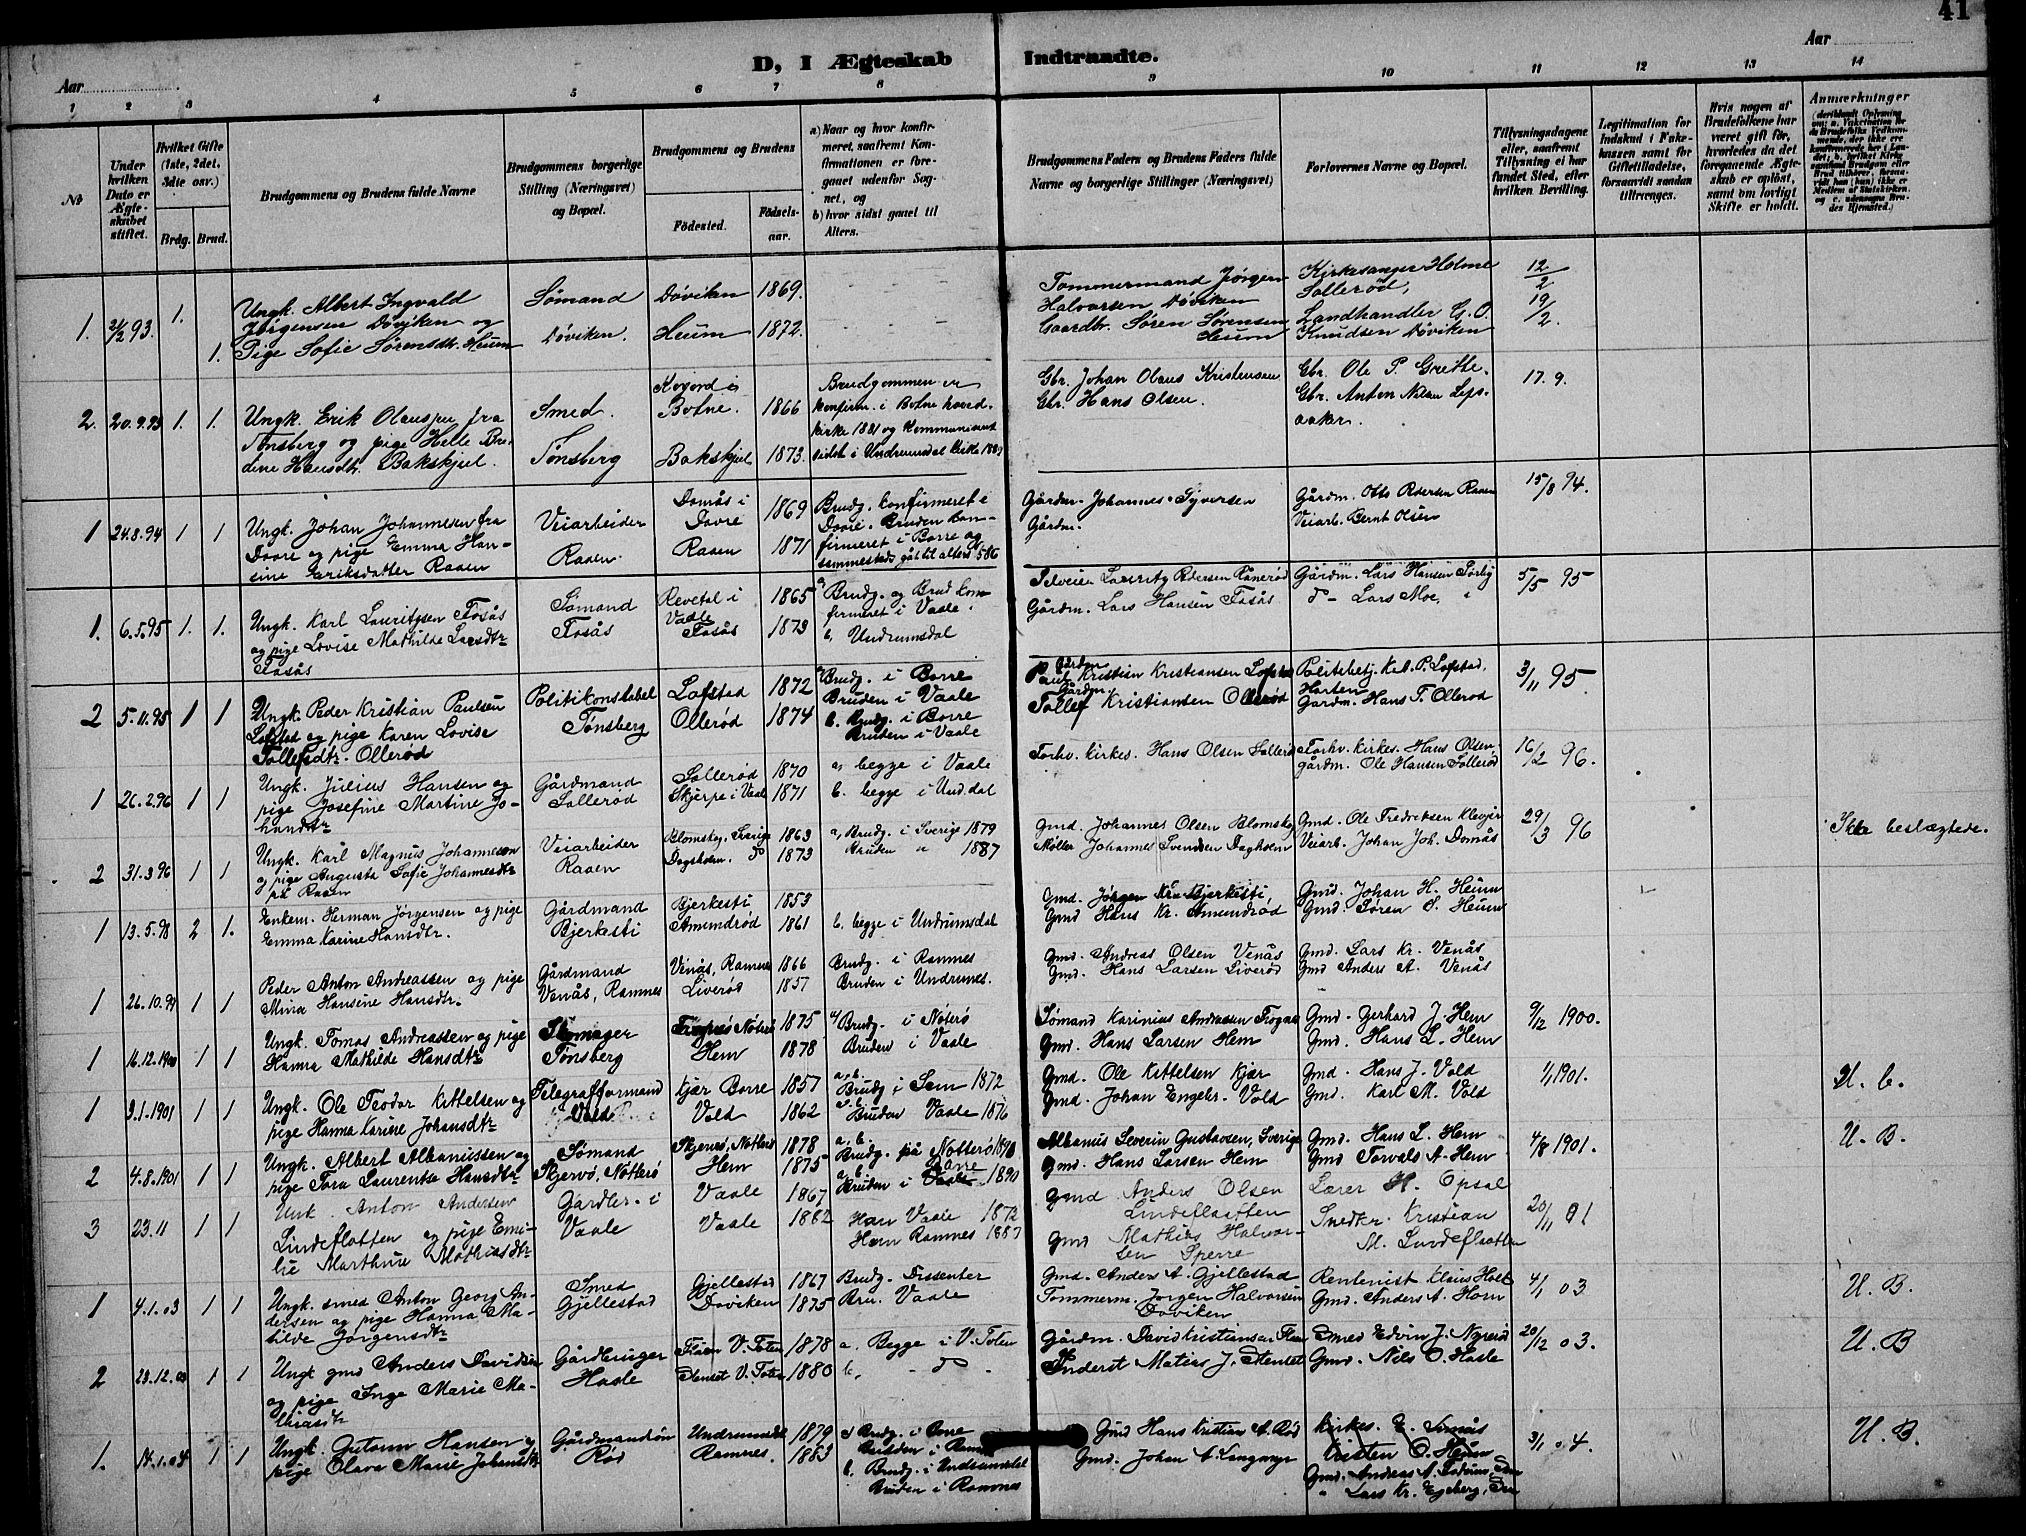 41
D, I Ægteskab Indtraadte.
Aar
Aar
1 2 3 4 5 6 7 8 9 10 11 12 13 14
No
Under hvilken Dato er Ægteskabet stiftet.
Hvilket Gifte (1ste, 2det, 3die osv.)
Brdg. Brud.
Brudgommens og Brudens fulde Navne
Brudgommens borgerlige Stilling (Næringsvei) og Bopæl.
Brudgommens og Brudens
Födested. Födsels-aar.
a) Naar og hvor konfirmeret, saafremt Konfirmationen er foregaaet udenfor Sognet, og
b) hvor sidst gaaet til Alters.
Brudgommens Faders og Brudens Faders fulde Navne og borgerlige Stillinger (Næringsvei)
Forlovernes Navne og Bopæl.
Tillysningsdagene eller, saafremt Tillysning ei har fundet Sted, efter hvilken Bevilling.
Legitimation for Indskud i Enkekassen samt for Giftetilladelse, forsaavidt saadan tiltrænges.
Hvis nogen af Brudefolkene har været gift för, hvorledes da det foregaaende Ægteskab er oplöst, samt om lovligt Skifte er holdt.
Anmærkninger
1. 21/2 93. 1. 1.
Ungk. Albert Ingvald
Jørgensen Døviken og
Pige Sofie Sørensdtr. Heum
Sømand
Døviken.
Døviken 1869.
Heum 1872.
Tømmermand Jørgen
Halvorsen Døviken
Gaardbr. Søren Sørensen
Heum
Kirkesanger Holme
Sollerød,
Landhandler G. O.
Knudsen Døviken
12/2
19/2.
2. 20.9.93 1. 1.
Ungk. Erik Olaussen fra
Tønsberg og pige Helle Bre-
dine Hansdtr. Bakskjul.
Smed.
Tønsberg
Botne. 1866
Bakskjul 1873.
Brudgommen er
konfirm. i Botne hoved-
kirke 1881 og kommuniceret
sidst i Undrumsdal kirke
Gbr. Johan Olaus Kristensen
Gbr. Hans Olsen.
Gbr. Ole P. Grette.
Gbr. Anton Nilsen Leps-
aaker.
17. 9.
1 24.8.94 1 1
Ungk. Johan Johannesen fra
Dovre og pige Emma Han-
sine Eriksdatter Raaen
Veiarbeider
Raaen
Domås i
Dovre 1869
Raaen 1871
Brudg. konfirmeret i
Dovre. Bruden kon-
firmeret i Borre og
sammesteds gåt til alters
Gårdm. Johannes Syversen
Gårdm.
Gårdm. Otto Pedersen Raaen
Veiarb. Bernt Olsen
15/8 94.
1. 6.5.95 1. 1.
Ungk. Karl Lauritzsen Fosås
og pige Lovise Mathilde Larsdtr
Fosås
Sømand
Fosås
Revetal i
Vaale 1865
Fosås 1873
a, Brudg. og Brud kon-
firmeret i Vaale.
b, Undrumsdal
Lauritz Pedersen Ranerød
Gårdm. Lars Hansen Fosås
Gårdm. Lars Hansen Sørby
do - Lars Moe,
5/5 95
2 5.11.95 1 1
Ungk. Peder Kristian Paulsen
Lofstad og pige Karen Lovise
Tollefsdtr. Ollerød
Politikonstabel
Tønsberg
Lofstad 1872
Ollerød 1874
a, Brudg. i Borre
Bruden i Vaale
b. Brudg. i Borre
Bruden i Vaale
Gårdm.
Paul Kristian Kristiansen Lofstad
Gårdm.
Tollef Kristiansen Ollerød
Politibetj. Kr. P. Lofstad,
Horten
Gårdm. Hans T. Ollerød
3/11 95.
1 26.2.96 1 1
Ungk. Julius Hansen og
pige Josefine Martine Jo-
hansdtr
Gårdmand
Sollerød
Sollerød 1870
Skjerpe i Vaale 1871
a, begge i Vaale
b. begge i Und.dal
Forhv. kirkes. Hans Olsen Sollerød
Forhv. kirkes. Hans Olsen
gårdm. Ole Hansen Sollerød
16/2 96.
2 31.3.96 1 1
Ungk. Karl Magnus Johannesen
og pige Augusta Sofie Johannesdtr
på Raaen
Veiarbeider
Raaen
Blomskog, Sverige 1863
Dagsholm. do 1873
a, Brudg. i Sverige 1879
Bruden " 1887
Gmd. Johannes Olsen Blomskog
Møller Johannes Svendsen Dagholm
Gmd. Ole Fredriksen Klevjer
Veiarb. Johan Joh. Domås
29/3 96
Ikke beslægtede.
1 13.5.98 2 1.
Enkem. Herman Jørgensen og pige
Emma Karine Hansdtr.
Gårdmand
Bjerkesti
Bjerkesti 1853
Amundrød 1861
b. begge i Undrumsdal
Gmd. Jørgen Kr. Bjerkesti,
Gmd Hans Kr. Amundrød
Gmd. Johan H. Heum
Gmd. Søren S. Heum
1 26.10.99 1 1
Peder Anton Andreassen og pige
Mina Hansine Hansdtr.
Gårdmand
Venås, Ramnes
Venås, Ramnes 1866
Liverød 1857
Brudg. i Ramnes
Bruden i Undrumsd.
Gmd. Andreas Olsen Venås
Gmd. Hans Larsen Liverød
Gmd. Lars Kr. Venås
Gmd Anders A. Venås
1 16.12.1900 1 1
Ungk. Tomas Andreassen og pige
Hanna Mathilde Hansdtr
Skomager
Tønsberg
Nøterø 1875
Hem 1878
a, Brudg. i Nøterø
Bruden i Vaale
Sømand Karinius Andreasen Trognes
Gmd. Hans Larsen Hem
Gmd. Gerhard J. Hem
Gmd. Hans L. Hem
9/12 1900.
1 9.1.1901 1 1
Ungk. Ole Teodor Kittelsen og
pige Hanna Karine Johansdtr
Telegrafformand
Vold
Kjær Borre 1857
Vold 1862
a, b.
Brudg i Sem 1872
a. b.
Bruden Vaale 1876
Gmd. Ole Kittelsen Kjær
Gmd. Johan Engebr. Vold
Gmd. Hans J. Vold
Gmd. Karl M. Vold
1/1 1901.
U. b.
2 4.8.1901 1 1
Ungk. Albert Albaniussen og
pige Tora Laurentse Hansdtr
Sømand
Skjervø, Nøtterø
Skjervø, Nøtterø 1878
Hem 1875
a, b.
Brudg. på Nøtterø
a. b.
Bruden i Vaale 1890
Albanius Severin Gustavsen, Sverige
Gmd. Hans Larsen Hem
Gmd. Hans L. Hem
Gmd Torvald A. Hem
4/8 1901.
U. B.
3 23.11 1 1
Unk. Anton Andersen
Lindeflotten og pige Emi-
lie Marthine Mathiasdtr
Gardbr. i
Vaale
Vaale 1867
Vaale 1882
Han Vaale 1872
Hun Ramnes 1887
Gmd Anders Olsen
Lindeflaatten
Gmd Mathias Halvor-
sen Sperre
Lærer H. Opsal
Snedkr. Kristian
M. Lindeflaatten
20/11 01
1 4.1.03 1 1
Ungk. smed Anton Georg An-
dersen og pige Hanna Ma-
tilde Jørgensdtr
Smed
Gjellestad
Gjellestad 1867
Døviken 1875
Brudg. Dissenter
Bru. Vaale
Gmd. Anders A. Gjellestad
Tømmerm. Jørgen Halvorsen
Døviken
Rentenist Klaus Holt
Gmd. Anders A. Horn
4/1 03
U. B.
2 29.12.03 1 1
Ungk gmd Anders Davidsen
og pige Inge Marie Ma-
thiasdtr
Gårdbruger
Hasle
V. Toten 1878
Stenset V. Toten 1880
a. Begge i V. Toten
b, - do -
Gårdm. David Kristiansen
Inderst Matias J. Stenset
Smed Edvin J. Nyreid
Gmd. Nils O. Hasle
20/12 03.
U. B
1. 14.1.04 1 1
Ungk. Gutorm Hansen og
pige Olava Marie Johansdtr
Gårdmandsøn
Rød
Undrumsdal 1879
Ramnes. 1883
a, Brudg. i Borre
Bruden i Ramnes
b. Brudg. i Undrumsdal
Bruden i Ramnes
Gmd Hans Kristian A. Rød
Gmd. Johan A. Langange
Kirkes. E. Simås
Kristen O. Heum
Gmd. Andreas A.
" Lars Kr. Egeberg,
3/1 04.
U. B.